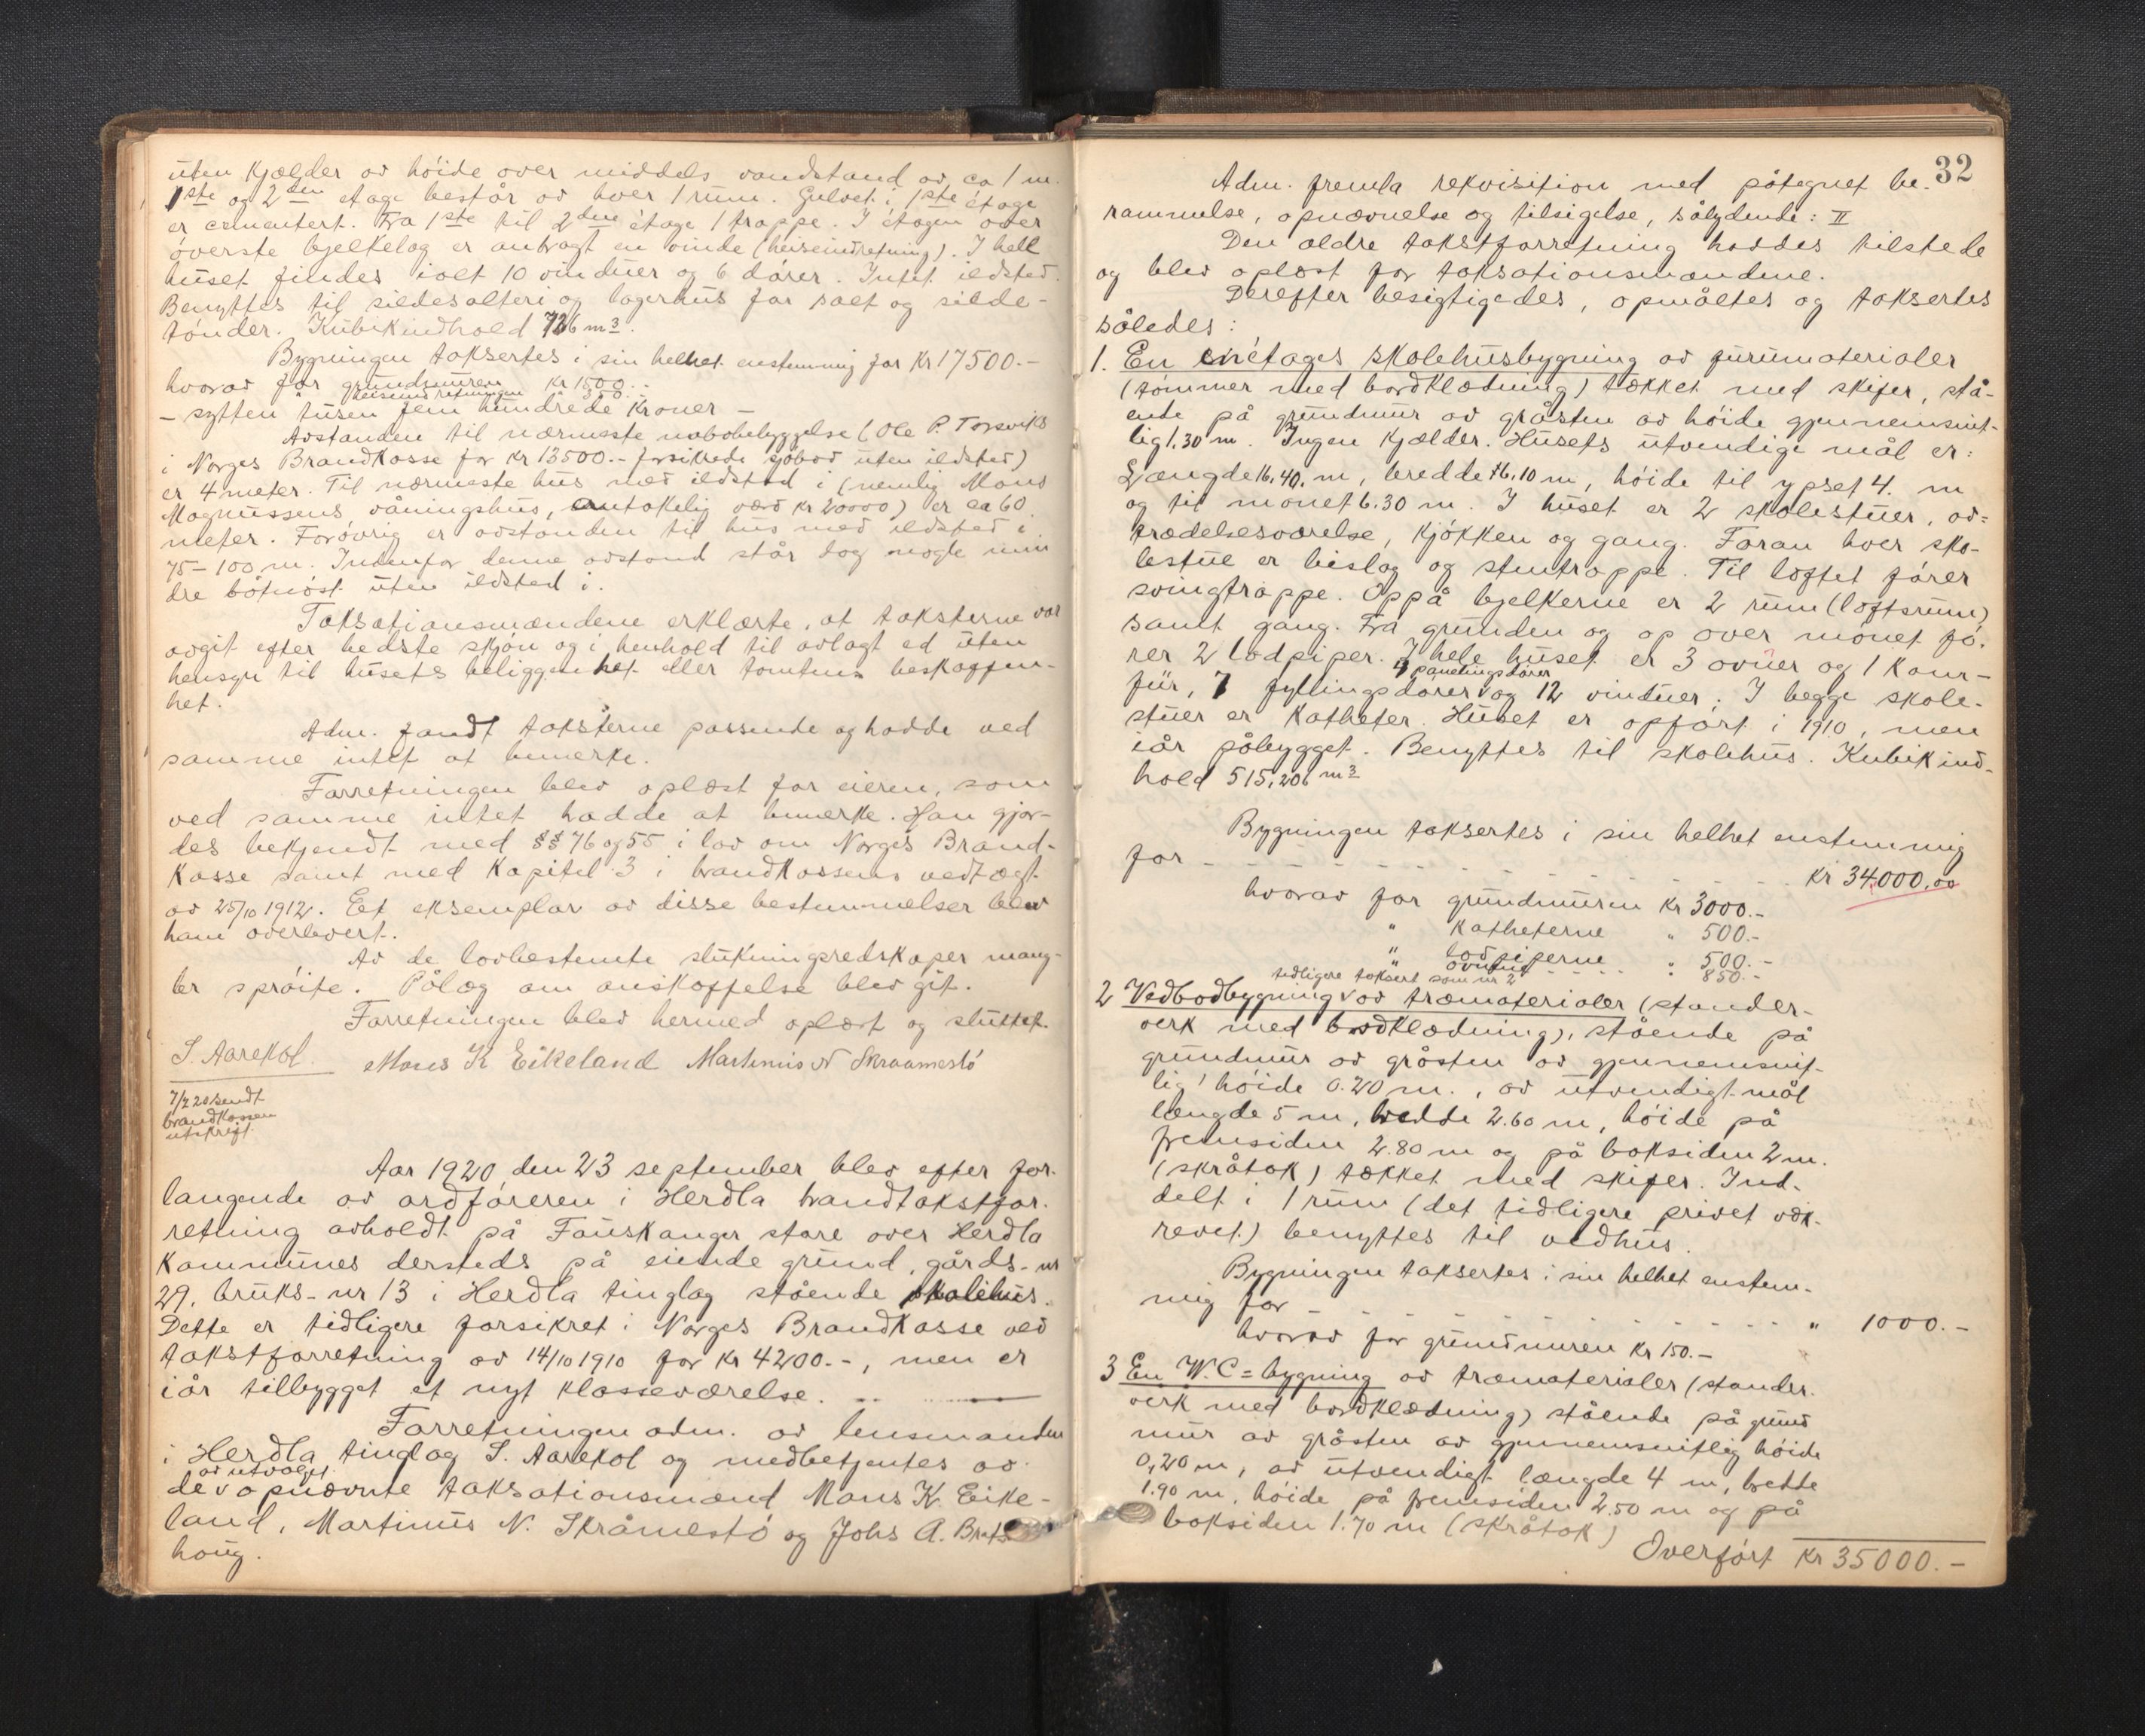 uten kjælder av høide over middels vandstand av ca 1 m.
1ste og 2den etage består av hver 1 rum. Gulvet i 1ste étage
er cementert. Fra 1ste til 2den étage 1 trappe. I étagen over
øverste bjelkelag er anbragt en vinde (heiseindretning). I helt
huset findes ialt 10 vinduer og 6 dører. Intet ildsted.
Benyttes til sildesalteri og lagerhus for salt og silde-
tønder. Kubikindhold 726 m3.
Bygningen taksertes i sin helhet enstemmig for kr 17500.-
hvorav for grundmuren kr 1500.-
" " heiseindretningen " 350.-
- sytten tusen fem hundrede kroner -
Avstanden til nærmeste nabobebyggelse (Ole P. Torsviks
i Norges Brandkasse for kr 13500.- forsikrede sjøbod uten ildsted)
er 4 meter. Til nærmeste hus med ildsted i (nemlig Mons
Magnussens våningshus, antakelig værd kr 20000) er ca 60
meter. Forøvrig er avstanden til hus med ildsted i
75-100 m. Indenfor denne avstand står dog nogle min
dre båtnøst uten ildsted i.
Taksationsmændene erklærte, at taksterne var
avgit efter bedste skjøn og i henhold til avlagt ed uten
hensyn til husets beliggenhet eller tomtens beskaffen-
het.
Adm. fandt taksterne passende og hadde ved
samme intet at bemerke.
Forretningen blev oplæst for eieren, som
ved samme intet hadde at bemerke. Han gjor-
des bekjendt med §§ 76 og 55 i lov om Norges Brand-
kasse samt med kapitel 3 i brandkassens vedtægt
av 25/10 1912. Et eksemplar av disse bestemmelser blev
ham overlevert.
Av de lovbestemte slukningsredskaper mang-
ler sprøite. Pålæg om anskaffelse blev git.
Forretningen blev hermed oplæst og sluttet.
S. Aarekol. Mons K Eikeland Martinus N Skraamestø
7/7 20 sendt
brandkassen
utskrift.
Aar 1920 den 23 september blev efter for-
langende av ordføreren i Herdla brandtakstfor-
retning avholdt på Fauskanger store over Herdla
kommunes dersteds på eiende grund, gårds-nr
29, bruks-nr 13 i Herdla tinglag stående skolehus.
Dette er tidligere forsikret i Norges Brandkasse ved
takstforretning av 14/10 1910 for kr 4200.-, men er
iår tilbygget et nyt klasseværelse.
Forretningen adm. av lensmanden
i Herdla tinglag S. Aarekol og medbetjentes av
av utvalget
de v opnævnte taksationsmænd Mons K. Eike-
land, Martinus N. Skråmestø og Johs A. Brat
houg.
32
Adm. fremla rekvisition med påtegnet be-
rammelse, opnævnelse og tilsigelse, sålydende: II
Den ældre takstforretning havdes tilstede
og blev oplæst for taksationsmændene.
Derefter besigtigedes, opmåltes og taksertes
således:
1. En enétages skolehusbygning av furumaterialer
(tømmer med bordklædning) tækket med skifer, stå-
ende på grundmur av gråsten av høide gjennemsnit-
lig 1.30 m. Ingen kjælder. Husets utvendige mål er:
Længde 16,40. m, bredde 76,10 m, høide til ypset 4. m
og til mønet 6.30 m. I huset er 2 skolestuer, av=
trædelsesværelse, kjøkken og gang. Foran hver sko-
lestue er bislag og stentrappe. Til loftet fører
svingtrappe. Oppå bjelkerne er 2 rum (loftsrum)
samt gang. Fra grunden og op over mønet fø-
rer 2 lodpiper. I hele huset er 3 ovner og 1 kom-
4 panelingsdører
für, 7 fyllingsdører v og 12 vinduer. I begge skole-
stuer er katheter. Huset er opført i 1910, men
iår påbygget. Benyttes til skolehus. Kubikind-
hold 515,206 m3
Bygningen taksertes i sin helhet enstemmig
for - - - kr 34.000,00
hvorav for grundmuren kr 3000.-
" katheterne " 500.-
" lodpiperne " 500.-
" ovnene " 850.-
tidligere taksert som nr 2
2 Vedbodbygning v av træmaterialer (stander-
verk med bordklædning), stående på
grundmur av gråsten av gjennemsnit-
lig høide 0.20 m., av utvendigt mål
længde 5 m, bredde 2.60 m, høide på
fremsiden 2.80 m og på baksiden 2 m.
(skråtak) tækket med skifer. Ind-
delt i 1 rum (det tidligere privet væk-
revet) benyttes til vedhus.
Bygningen taksertes i sin helhet enstem-
mig for - - - " 1000.-
hvorav for grundmuren kr 150.-
3 En W.C = bygning av træmaterialer (stander-
verk med bordklædning) stående på grund
mur av gråsten av gjennemsnitlig høide
0,20 m, av utvendigt længde 4 m, bredde
1.90 m, høide på fremsiden 2.50 m og på
baksiden 1.70 m (skråtak)
Overført kr 35000.-